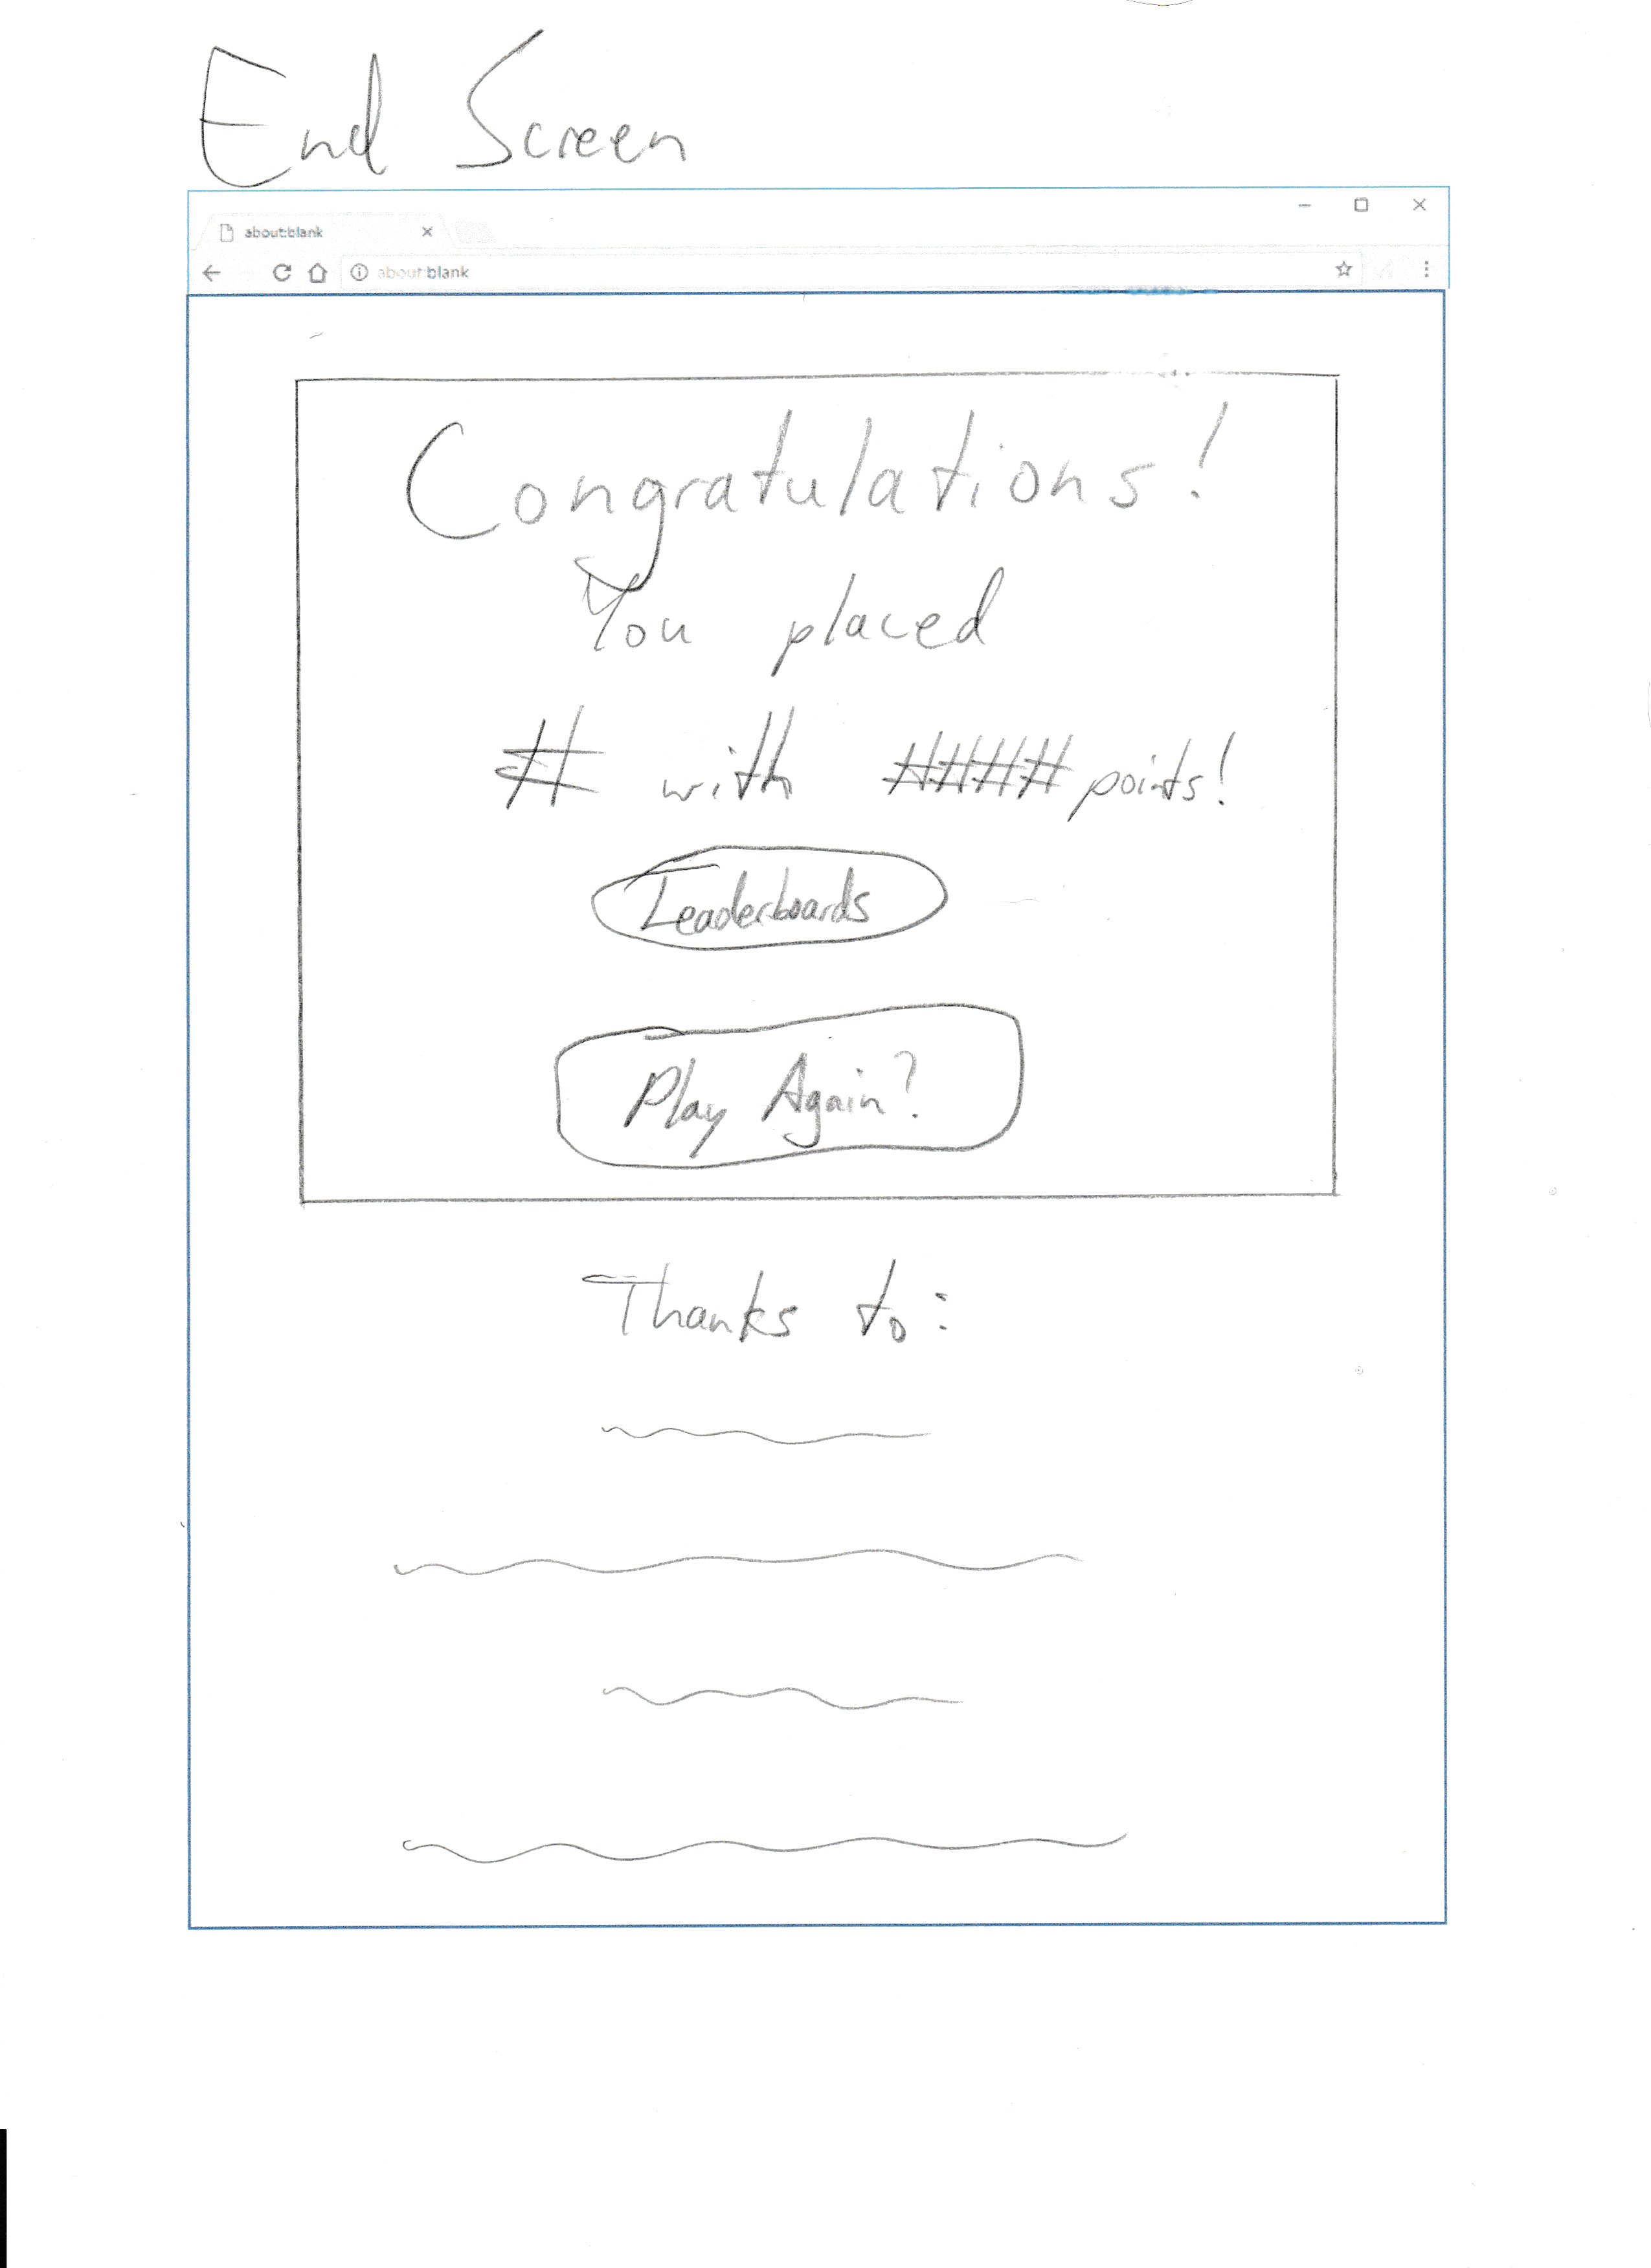 End Screen
about:blank
about:blank
Congratulations!
You placed
# with #### points!
Leaderboards
Play Again?
Thanks to: